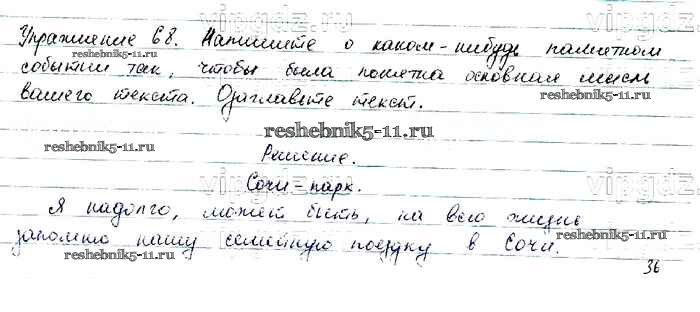 Упражнение 68. Напишите о каком-нибудь памятном
событии так, чтобы была понятна основная мысль
вашего текста. Озаглавьте текст.
Решение.
Сочи-парк.
Я надолго, может быть, на всю жизнь
запомню нашу семейную поездку в Сочи.
36
vipgdz.ru
reshebnik5-11.ru
reshebnik5-11.ru
reshebnik5-11.ru
reshebnik5-11.ru
vipgdz.ru
vipgdz
reshebnik5-11.ru
reshebnik5-11.ru